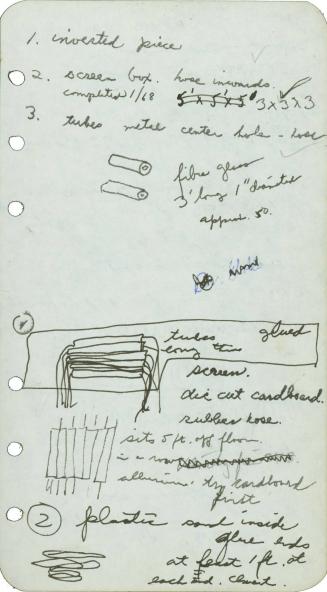 1. inverted piece
2. screen box. hose inwards.
completed 1/68 5'x5'x5' 3x3x3
3. tubes metal center hole - hose
fibre glass
3' long 1" diameter
approx. 50.
1
tubes glued
long thin
screen.
die cut cardboard.
rubber hose.
sits 5 ft. off floor.
in a row
alluminum. try cardboard
first
2 plastic sand inside
glue ends
at least 1 ft. at
each end.